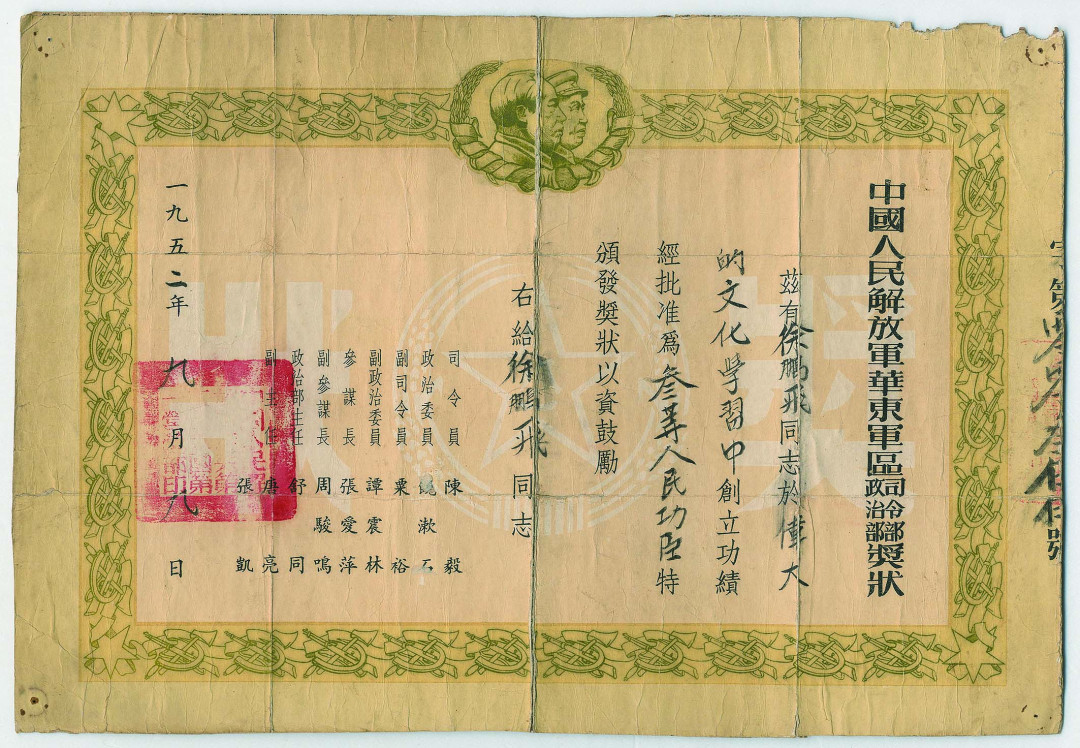 第
號
中國人民解放軍華東軍區司令部政治部獎狀
茲有徐鵬飛同志於偉大
的文化學習中創立功績
經批准爲叁等人民功臣特
頒發獎狀以資鼓勵
右給徐鵬飛同志
司令員 陳毅
政治委員 饒漱石
副司令員 粟裕
副政治委員 譚震林
參謀長 張愛萍
副參謀長 周駿鳴
政治部主任 舒同
副主任 唐亮
張凱
一九五二年九月八日